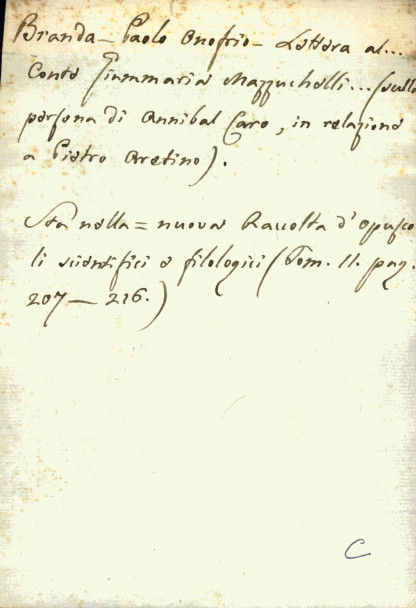 Branda - Paolo Onofrio - Lettera al...
Conte Giammaria Mazzuchelli... (sulla
persona di Annibal Caro, in relazione
a Pietro Aretino).
Sta nella = nuova Raccolta d'opusco
li scientifici e filologici (Tom. II. pag.
207 — 216.)
C